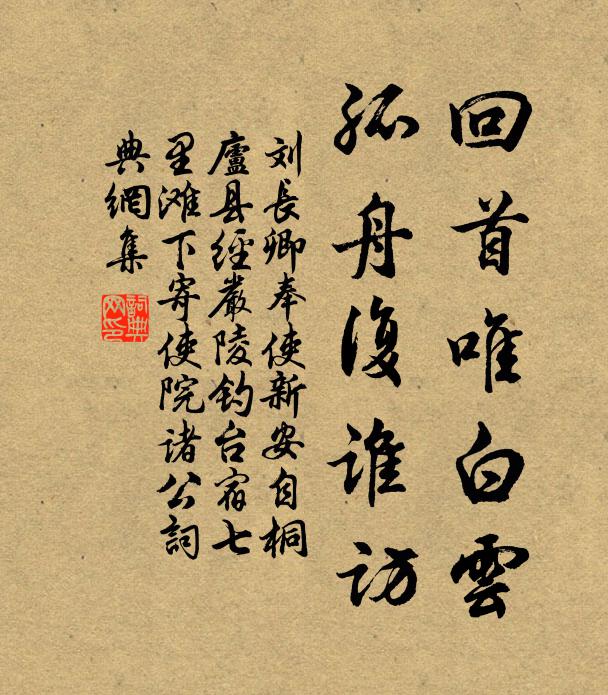 回首唯白雲
孤舟復誰訪
刘長卿奉使新安自桐
廬县經嚴陵钓台宿七
里滩下寄使院诸公詞
典網集
詞典
网印